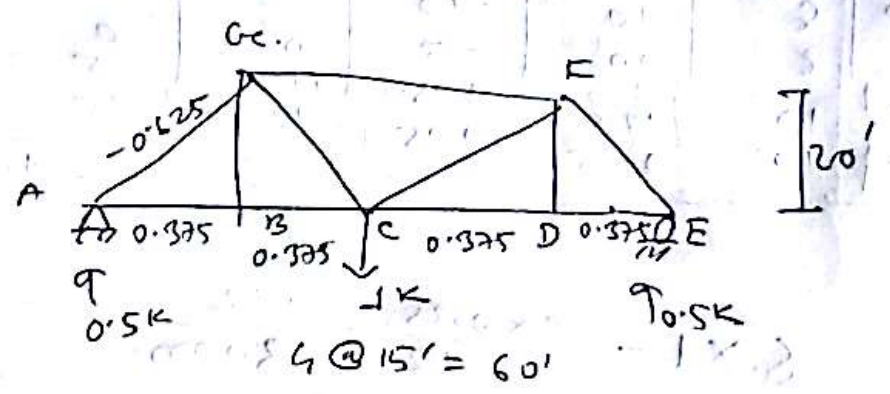 G
F
-0.625
20'
A
0.375
B
0.375
C
0.375
D
0.375
E
0.5K
1K
0.5K
4 @ 15' = 60'